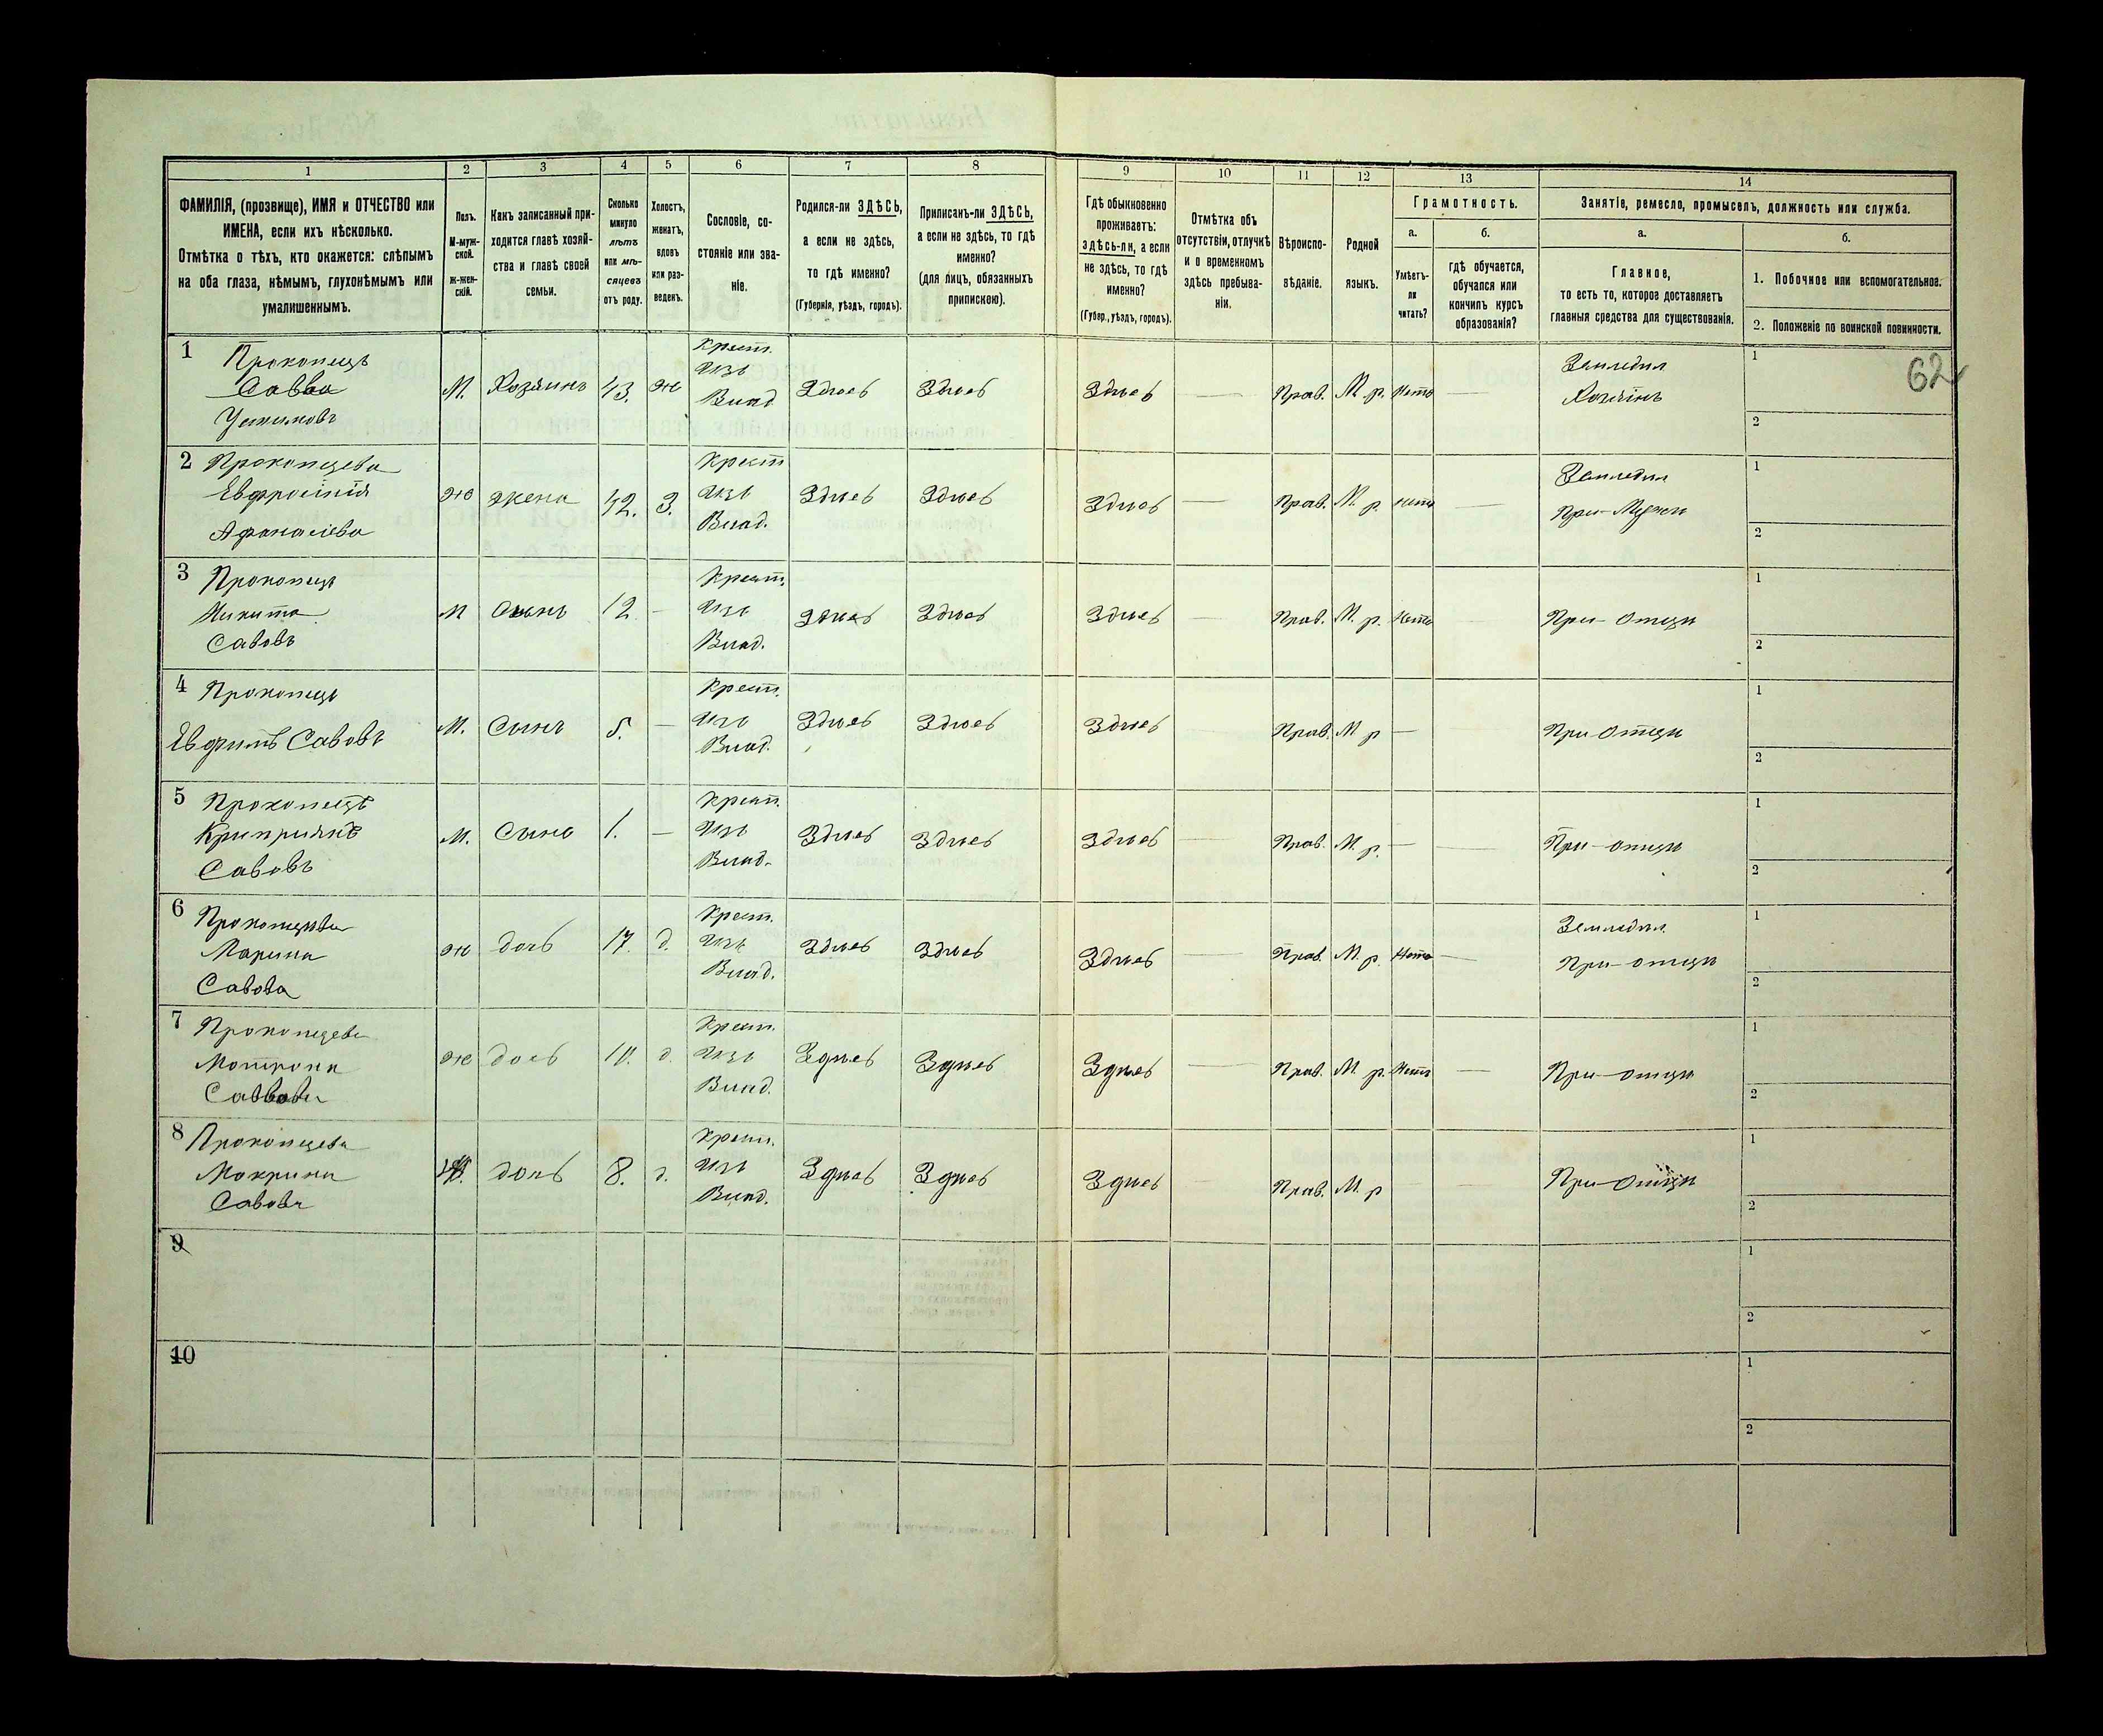 1 2 3 4 5 6 7 8 9 10 11 12 13 14
ФАМИЛІЯ, (прозвище), ИМЯ и ОТЧЕСТВО или
ИМЕНА, если ихъ нѣсколько.
Отмѣтка о тѣхъ, кто окажется: слѣпымъ
на оба глаза, нѣмымъ, глухонѣмымъ или
умалишеннымъ.
Полъ.
М-муж-
ской.
ж-жен-
скій.
Какъ записанный при-
ходится главѣ хозяй-
ства и главѣ своей
семьи.
Сколько
минуло
лѣтъ
или мѣ-
сяцевъ
отъ роду.
Холостъ,
женатъ,
вдовъ
или раз-
веденъ.
Сословіе, со-
стояніе или зва-
ніе.
Родился-ли ЗДѢСЬ,
а если не здѣсь,
то гдѣ именно?
(Губернія, уѣздъ, городъ).
Приписанъ-ли ЗДѢСЬ,
а если не здѣсь, то гдѣ
именно?
(для лицъ, обязанныхъ
припискою).
Гдѣ обыкновенно
проживаетъ:
здѣсь-ли, а если
не здѣсь, то гдѣ
именно?
(Губер., уѣздъ, городъ).
Отмѣтка объ
отсутствіи, отлучкѣ
и о временномъ
здѣсь пребыва-
ніи.
Вѣроиспо-
вѣданіе.
Родной
языкъ.
Грамотность.
а.
Умѣетъ-
ли
читать?
б.
гдѣ обучается,
обучался или
кончилъ курсъ
образованія?
Занятіе, ремесло, промыселъ, должность или служба.
а.
Главное,
то есть то, которое доставляетъ
главныя средства для существованія.
б.
1. Побочное или вспомогательное.
2. Положеніе по воинской повинности.
62
1 Прокопецъ
Савва
М. Хозяинъ 43. ж
Крест.
изъ
Влад.
Здѣсь Здѣсь Здѣсь — Прав. М. р. Нетъ —
Земледѣл
Хозяинъ
1
2
2 Прокопцева
Евфросінія
Афанасіева
ж жена 42. З.
Крест
изъ
Влад.
Здѣсь Здѣсь Здѣсь — Прав. М. р. нетъ —
Земледѣл
При-Мужѣ
1
2
3 Прокопецъ
Никита
Савовъ
М Сынъ 12 —
Крест.
изъ
Влад.
Здѣсь Здѣсь Здѣсь — Прав. М. р. Нетъ —
При-отцѣ
1
2
4 Прокопецъ
Савовъ
М. Сынъ 5. —
Крест.
изъ
Влад.
Здѣсь Здѣсь Здѣсь Прав. М р —
При-отцѣ
1
2
5 Прокопецъ
Савовъ
М. Сынъ 1. —
Крест.
изъ
Влад.
Здѣсь Здѣсь Здѣсь — Прав. М. р. — —
При-отцѣ
1
2
6 Прокопцева
Марина
Савова
ж дочь 17. д.
Крест.
изъ
Влад.
Здѣсь Здѣсь Здѣсь — Прав. М. р. Нетъ —
Земледѣл
При-отцѣ
1
2
7 Прокопцева
Мотрона
Саввова
ж дочь д.
Крест.
изъ
Влад.
Здѣсь Здѣсь Здѣсь — Прав. М. р. Нетъ —
При-отцѣ
1
2
8 Прокопцева
Макрина
Савова
дочь 8. д.
Крест.
изъ
Влад.
Здѣсь Здѣсь Здѣсь — Прав. М. р —
При-отцѣ
1
2
9
1
2
10
1
2